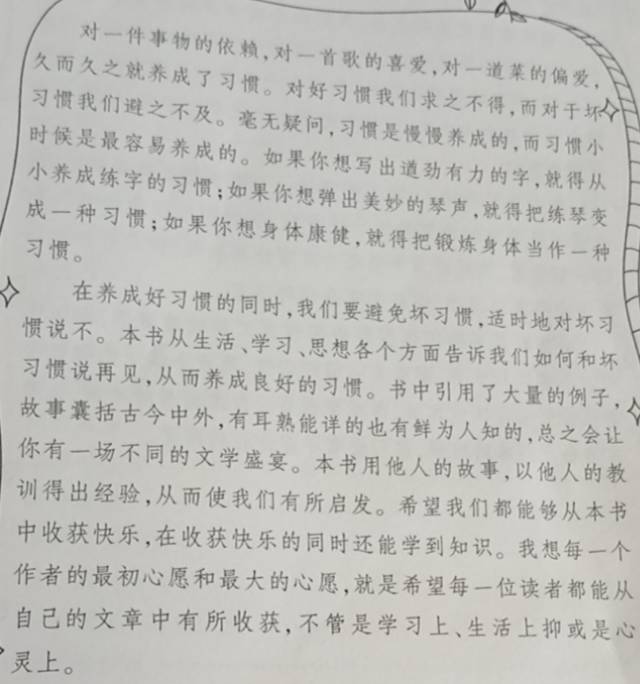 对一件事物的依赖,对一首歌的喜爱,对一道菜的偏爱,
久而久之就养成了习惯。对好习惯我们求之不得,而对于坏
习惯我们避之不及。毫无疑问,习惯是慢慢养成的,而习惯小
时候是最容易养成的。如果你想写出遒劲有力的字,就得从
小养成练字的习惯;如果你想弹出美妙的琴声,就得把练琴变
成一种习惯;如果你想身体康健,就得把锻炼身体当作一种
习惯。
在养成好习惯的同时,我们要避免坏习惯,适时地对坏习
惯说不。本书从生活、学习、思想各个方面告诉我们如何和坏
习惯说再见,从而养成良好的习惯。书中引用了大量的例子,
故事囊括古今中外,有耳熟能详的也有鲜为人知的,总之会让
你有一场不同的文学盛宴。本书用他人的故事,以他人的教
训得出经验,从而使我们有所启发。希望我们都能够从本书
中收获快乐,在收获快乐的同时还能学到知识。我想每一个
作者的最初心愿和最大的心愿,就是希望每一位读者都能从
自己的文章中有所收获,不管是学习上、生活上抑或是心
灵上。